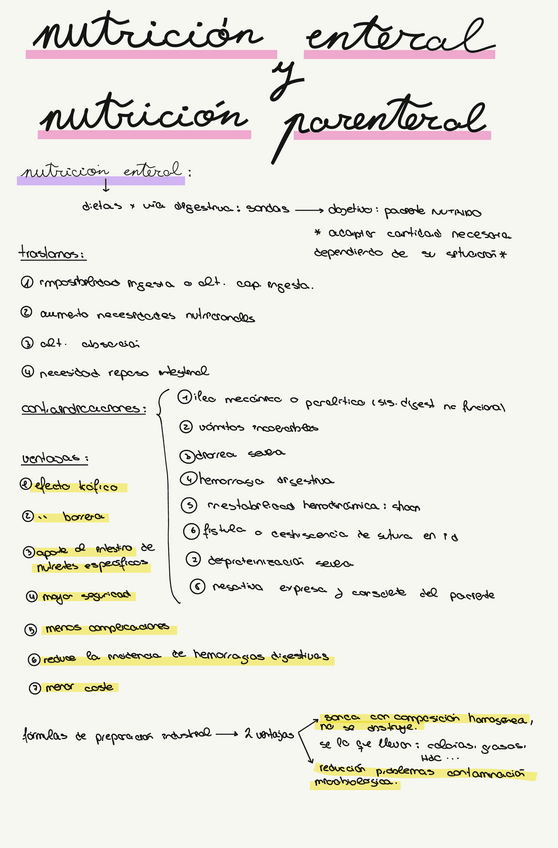 nutrición enteral
y
nutrición parenteral
nutrición enteral:
dietas x vía digestiva: sondas → objetivo: paciente NUTRIDO
* adaptar cantidad necesaria
dependiendo de su situación *
trastornos:
① imposibilidad ingesta o alt. cap. ingesta.
② aumento necesidades nutricionales
③ alt. absorción
④ necesidad reposo intestinal
contraindicaciones:
① íleo mecánico o paralítico (sis. digest no funcional
② vómitos incoercibles
③ diarrea severa
④ hemorragia digestiva
⑤ inestabilidad hemodinámica: shock
⑥ fístula o dehiscencia de sutura en
⑦ desproteinización severa
⑧ negativa expresa y consciente del paciente
ventajas:
① efecto trófico
② '' barrera
③ aporte al intestino de
nutrientes específicos
④ mayor seguridad
⑤ menos complicaciones
⑥ reduce la incidencia de hemorragias digestivas
⑦ menor coste
fórmulas de preparación industrial → 2 ventajas
con composición homogénea,
no se obstruye.
se lo que llevan: calorías, grasas,
HdC ...
reducción problemas contaminación
microbiológica.